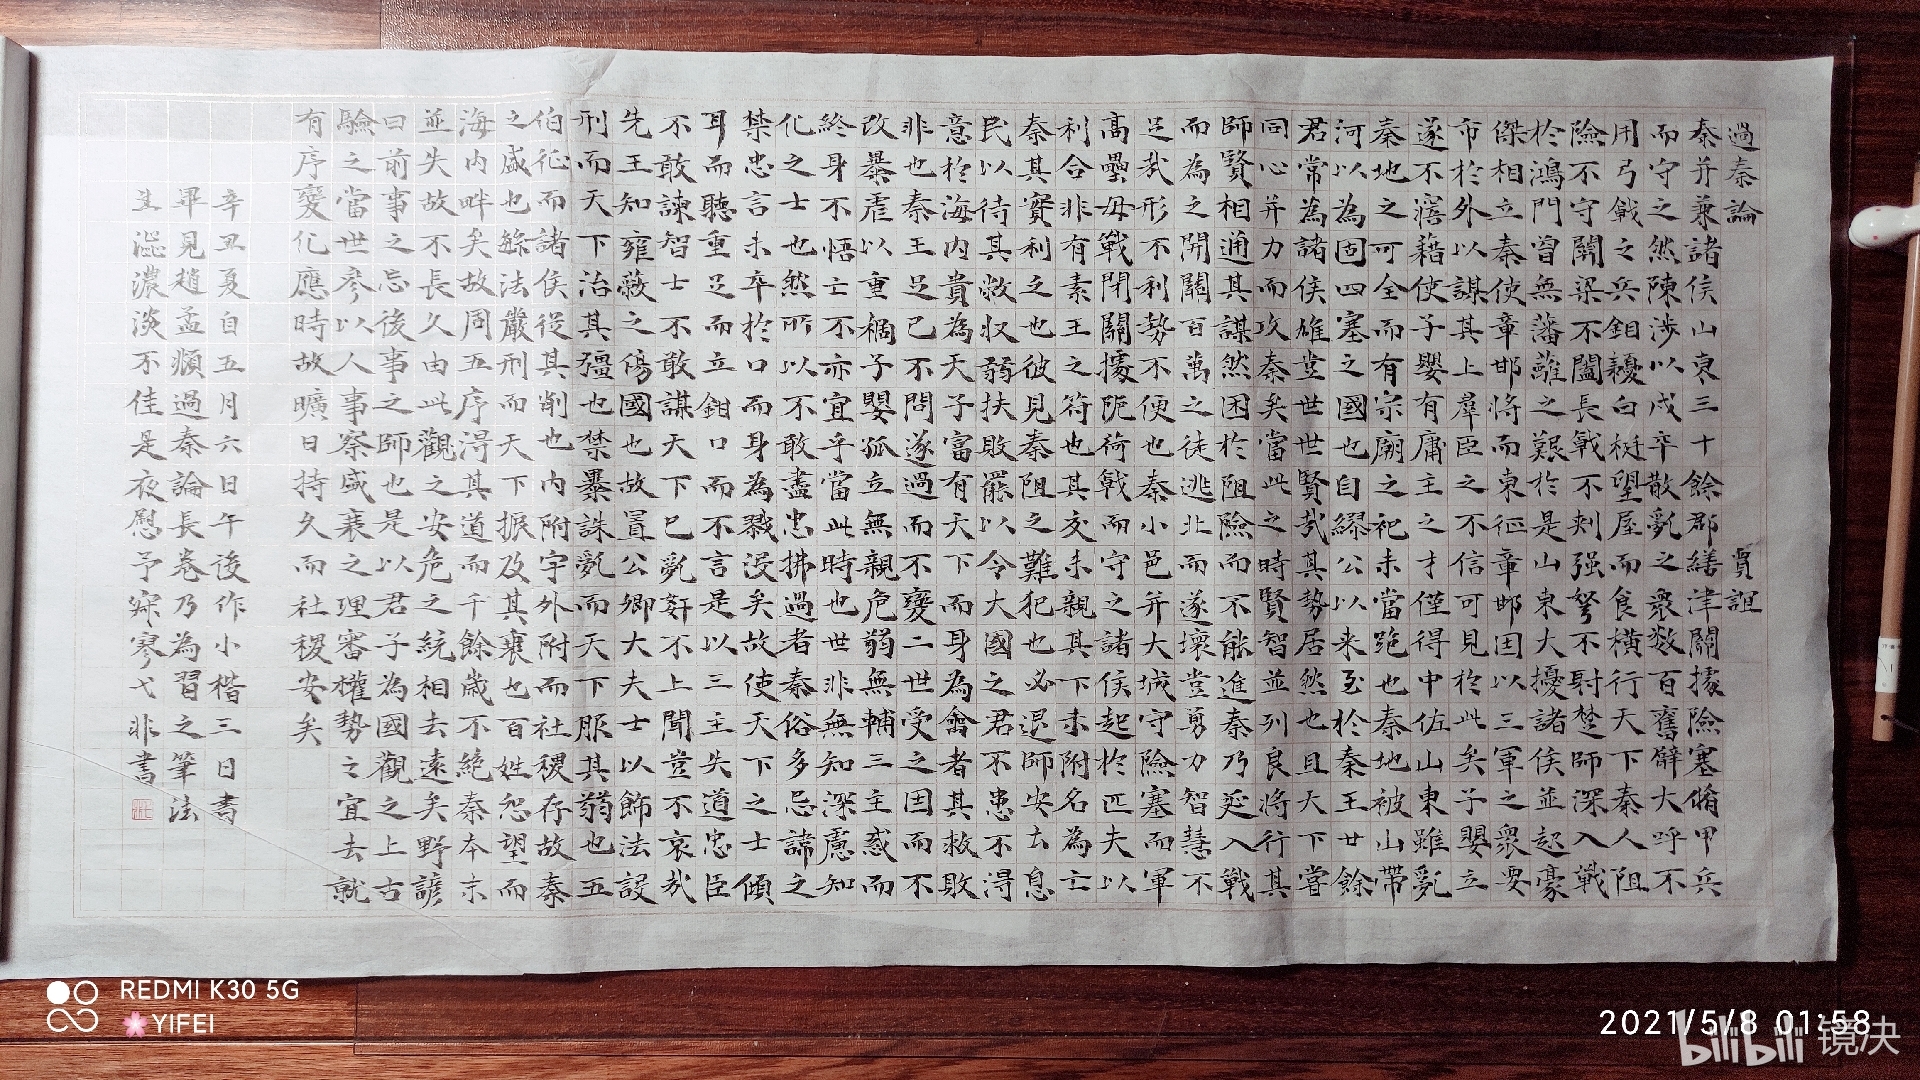 過秦論 賈誼
秦并兼諸侯山東三十餘郡繕津關據險塞脩甲兵
而守之然陳涉以戍卒散亂之衆数百奮臂大呼不
用弓戟之兵鉏耰白梃望屋而食橫行天下秦人阻
險不守關梁不闔長戟不刺强弩不射楚師深入戰
於鴻門曾無藩籬之艱於是山東大擾諸侯並起豪
傑相立秦使章邯將而東征章邯因以三軍之衆要
市於外以謀其上羣臣之不信可見於此矣子嬰立
遂不寤藉使子嬰有庸主之才僅得中佐山東雖亂
秦地之可全而有宗廟之祀未當絶也秦地被山帶
河以為固四塞之國也自繆公以来至於秦王廿餘
君常為諸侯雄豈世世賢哉其勢居然也且天下嘗
同心并力而攻秦矣當此之時賢智並列良將行其
師賢相通其謀然困於阻險而不能進秦乃延入戰
而為之開關百萬之徒逃北而遂壞豈勇力智慧不
足哉形不利勢不便也秦小邑并大城守險塞而軍
高壘毋戰閉關據阨荷戟而守之諸侯起於匹夫以
利合非有素王之符也其交未親其下未附名為亡
秦其實利之也彼見秦阻之難犯也必退師安去息
民以待其敝收弱扶敗罷以令大國之君不患不得
意於海内貴為天子富有天下而身為禽者其救敗
非也秦王足已不問遂過而不變二世受之因而不
改暴虐以重禍子嬰孤立無親危弱無輔三主惑而
終身不悟亡不亦宜乎當此時也世非無知深慮知
化之士也然所以不敢盡忠拂過者秦俗多忌諱之
禁忠言未卒於口而身為戮没矣故使天下之士傾
耳而聽重足而立鉗口而不言是以三主失道忠臣
不敢諫智士不敢謀天下已亂姧不上聞豈不哀哉
先王知雍蔽之傷國也故置公卿大夫士以飾法設
刑而天下治其彊也禁暴誅亂而天下服其弱也五
伯征而諸侯從其削也内附宇外附而社稷存故秦
之盛也緐法嚴刑而天下振及其衰也百姓怨望而
海内畔矣故周五序得其道而千餘歲不絶秦本末
並失故不長久由此觀之安危之統相去遠矣野諺
曰前事之忘後事之師也是以君子為國觀之上古
驗之當世參以人事察盛衰之理審權勢之宜去就
有序變化應時故曠日持久而社稷安矣
辛丑夏自五月六日午後作小楷三日書
畢見趙孟頫過秦論長卷乃為習之筆法
生澀濃淡不佳是夜慰予寂寥弋非書
REDMI K30 5G
YIFEI
2021/5/8 01:58
bilibili 镜决